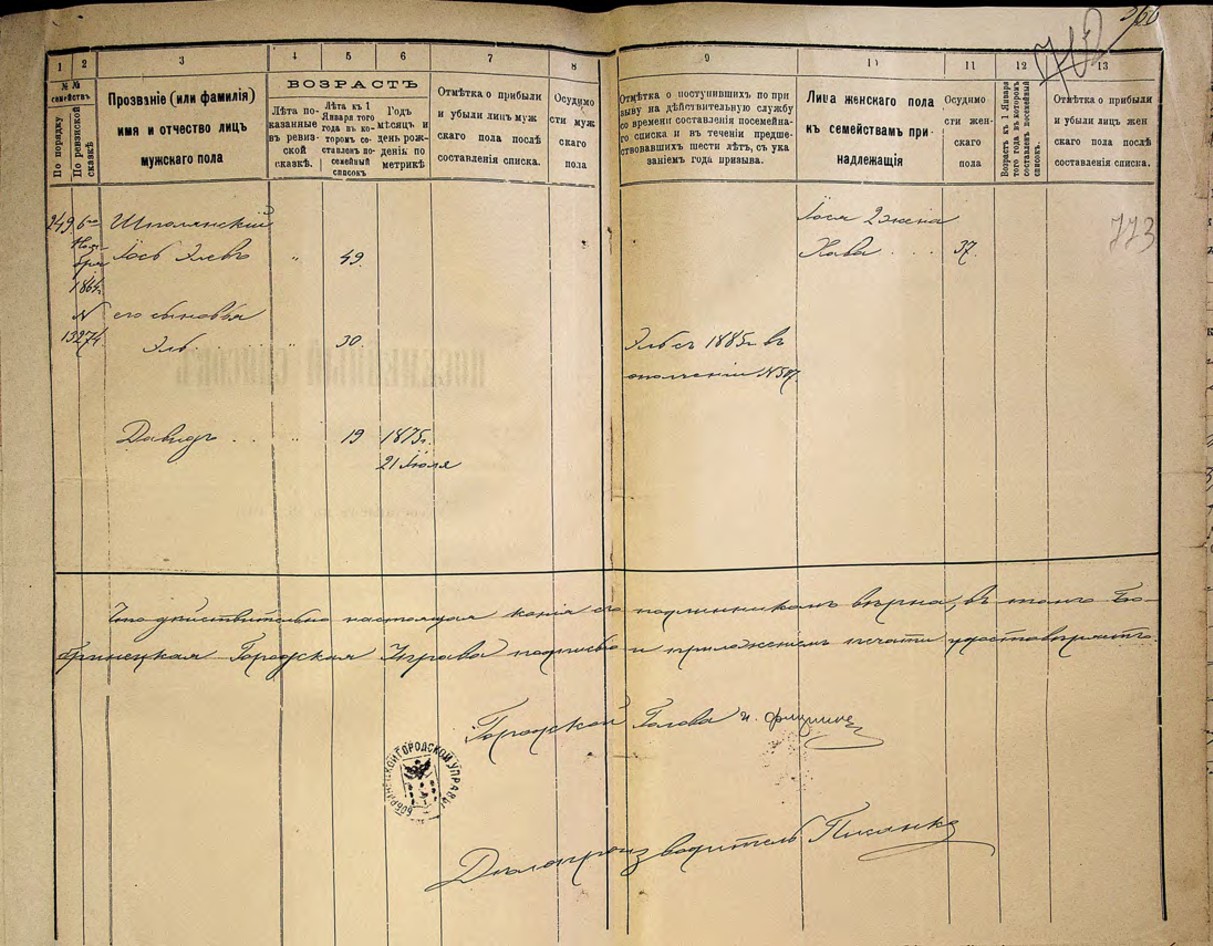 360
702
1 2 3 4 5 6 7 8 9 10 11 12 13
№ №
семействъ
По порядку
По ревизской
сказкѣ
Прозваніе (или фамилія)
имя и отчество лицъ
мужскаго пола
ВОЗРАСТЪ
Лѣта по-
казанные
въ ревиз-
ской
сказкѣ.
Лѣта къ 1
Января того
года въ ко-
торомъ со-
ставленъ по-
семейный
списокъ
Годъ
мѣсяцъ и
день рож-
денія по
метрикѣ
Отмѣтка о прибыли
и убыли лицъ муж
скаго пола послѣ
составленія списка.
Осудимо
сти муж
скаго
пола
Отмѣтка о поступившихъ по при
зыву на дѣйствительную службу
со времени составленія посемейна-
го списка и въ теченіи предше-
ствовавшихъ шести лѣтъ, съ ука
заніемъ года призыва.
Лица женскаго пола
къ семействамъ при-
надлежащія
Осудимо
сти жен-
скаго
пола
Возрастъ къ 1 Января
того года въ которомъ
составленъ посемейный
списокъ.
Отмѣтка о прибыли
и убыли лицъ жен
скаго пола послѣ
составленія списка.
249 6го Шполянскій Іося 2 жена
Ноя-
бря Іось Элевъ " 49. Хава . . . 37. 773
1864г.
N его сыновья
13274. Эль . . . " 30. Эль съ 1885г. въ
ополченіи №507.
Давидъ . . . " 19 1875г.
21 Іюля
Что дѣйствительно настоящая копія съ подлинникомъ вѣрна, въ томъ Бо-
бринецкая Городская Управа подписью и приложеніемъ печати удостовѣряетъ.
Городской Голова
БОБРИНЕЦКОЙ ГОРОДСКОЙ УПРАВЫ
Дѣлопроизводитель Писанко